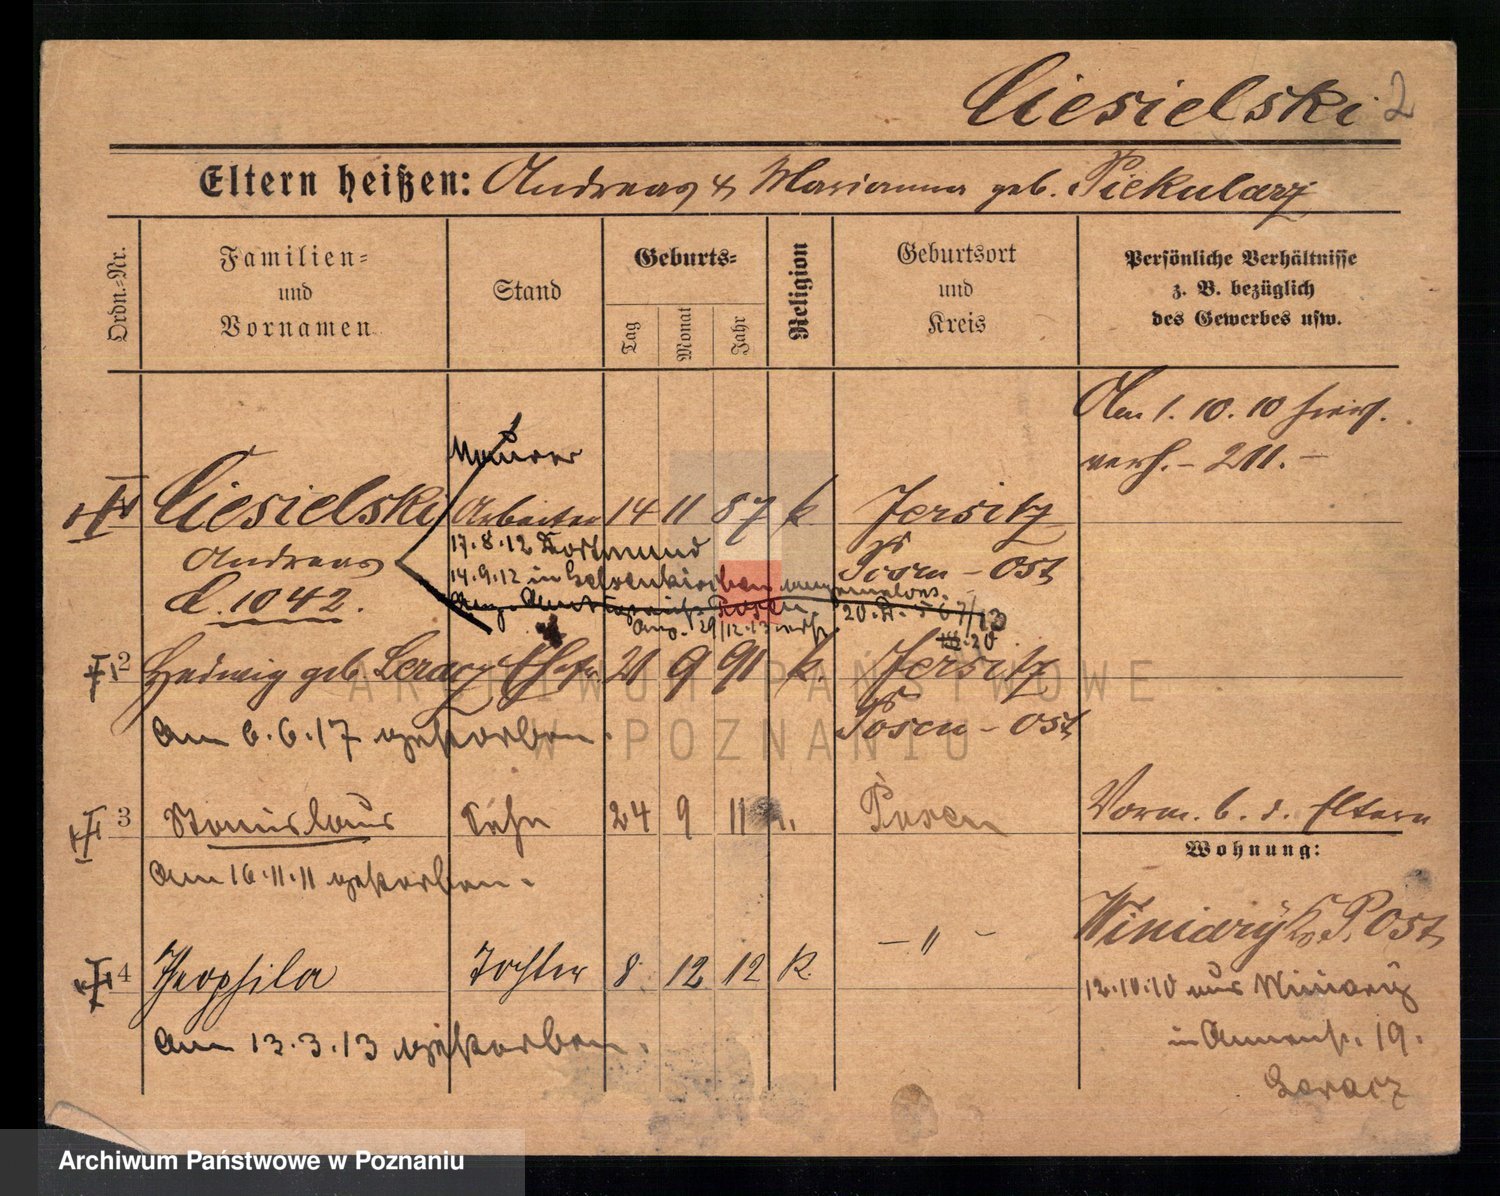 Ciesielski 2
Eltern heißen: Andreas & Marianna geb. Piekularz
Ordn.-Nr.
Familien-
und
Vornamen
Stand
Geburts-
Tag
Monat
Jahr
Religion
Geburtsort
und
Kreis
Persönliche Verhältnisse
z. B. bezüglich
des Gewerbes usw.
Am 1. 10. 10 hier
verh. - 211. -
Maurer
Ciesielski Arbeiter 14 11 87 k. Jersitz
Andreas
L. 1042.
17.8.12 Dortmund
14.9.12 in Gelsenkirchen
Posen - Ost
Posen
20.
29/12.13
67/13
20
2 Hedwig geb. Leracz Ehefr. 21 9 91 k. Jersitz
Posen - Ost
am 6.6.17 gestorben.
3 Stanislaus Sohn 24 9 11 k. Posen
am 16.11.11 gestorben.
Vorm. b. d. Eltern
Wohnung:
Winiary Kr. P. Ost
4 Theophila Tochter 8 12 12 k. - " -
am 13.3.13 gestorben.
12.10.10 aus Winiary
in Annenstr. 19.
Leracz
ARCHIWUM PAŃSTWOWE
W POZNANIU
Archiwum Państwowe w Poznaniu